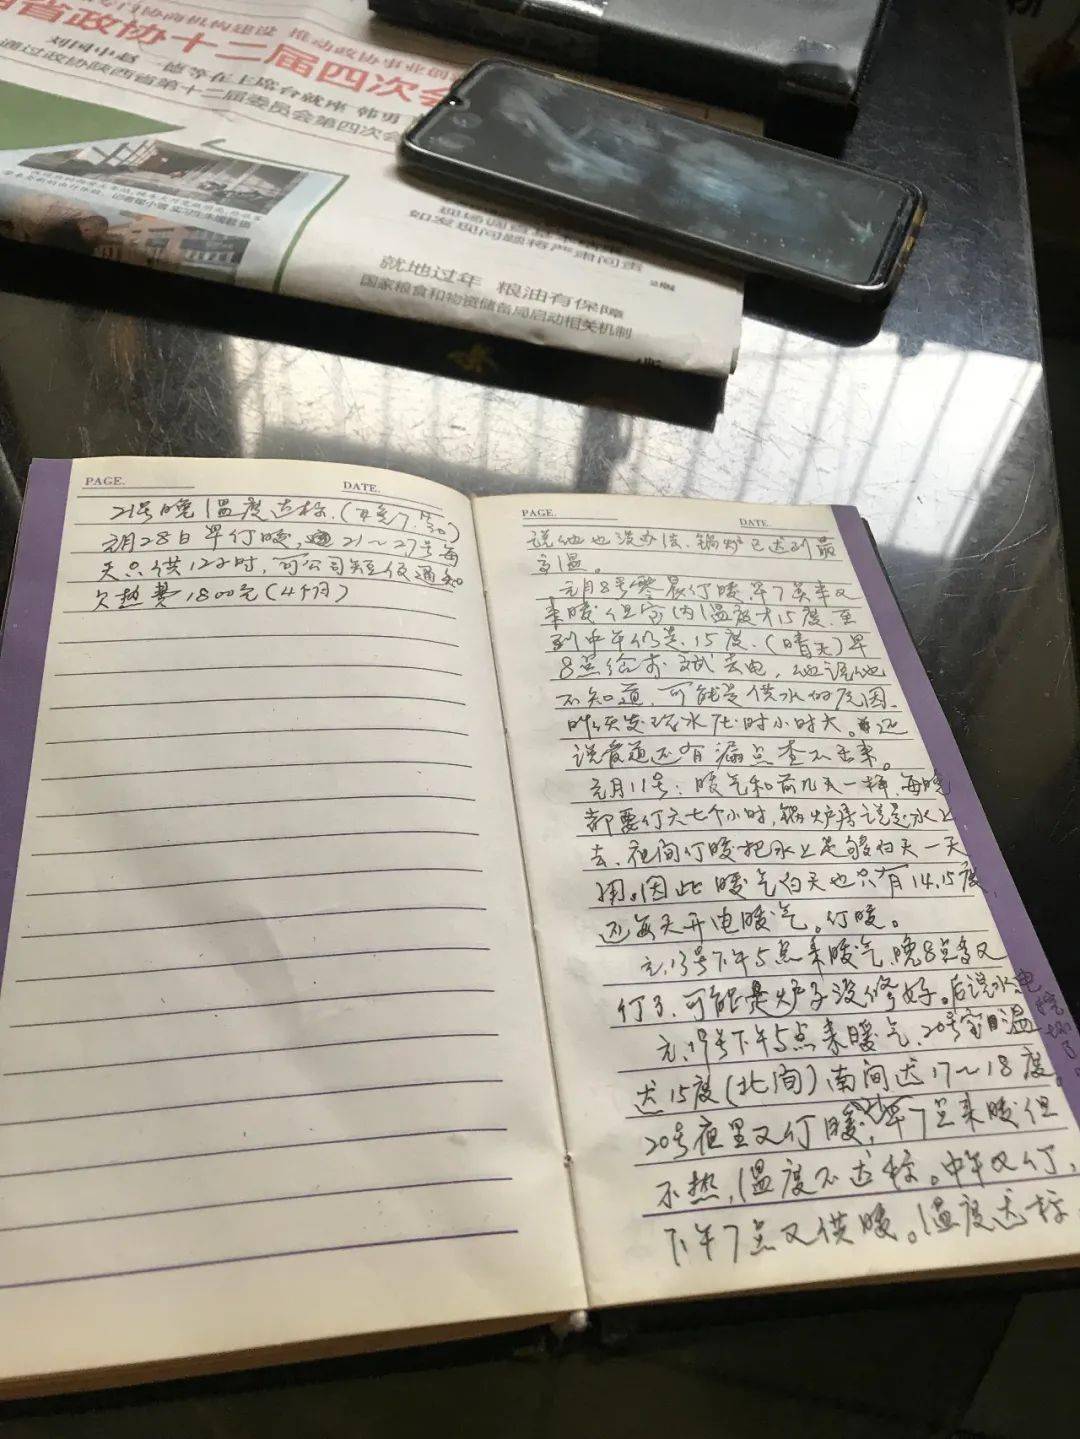 专门协商机构建设 推动政协事业创
省政协十二届四次会
刘国中赵一德等在主席台就座 韩勇
通过政协陕西省第十二届委员会第四次会
如发现问题将严肃问责
就地过年 粮油有保障
国家粮食和物资储备局启动相关机制
PAGE.
DATE.
21号晚温度达标.
元月28日早仃暖, 21～27号每
天只供12小时,可公司短信通知
欠热费1800元(4个月)
PAGE.
DATE.
说他也没办法、锅炉已达到最
高温。
元月8号零晨仃暖、早7点半又
来暖但室内温度才15度.至
到中午仍是15度.(晴天)早
8点给 去电,他说他
不知道,可能是供水的原因.
昨天发现水压时小时大。还
说管道还有漏点查不出来。
元月11号:暖气和前几天一样,每晚
都要仃六七个小时,锅炉房说是水上
去.夜间仃暖把水上足够白天一天
用。因此暖气白天也只有14.15度.
还每天开电暖气。仃暖。
元.13号下午5点来暖气.晚8点多又
仃了.可能是炉子没修好。后说水电
烧坏了
元.19号下午5点来暖气.20号室温
达15度(北间)南间达17～18度。
20号夜里又仃暖,早7点来暖但
不热,温度不达标。中午又仃,
下午7点又供暖。温度达标